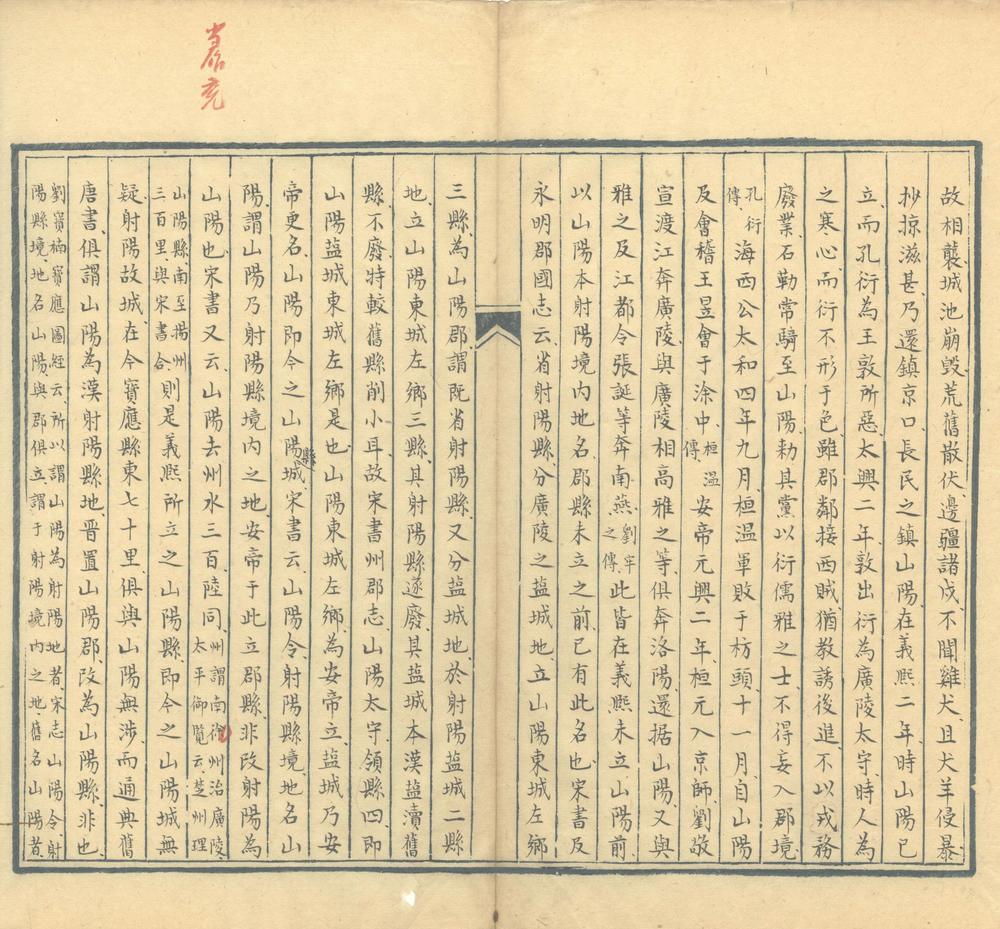 故相襲城池崩毀荒舊散伏邊疆諸戍不聞雞犬且犬羊侵暴
抄掠滋甚乃還鎮京口長民之鎮山陽在義熙二年時山陽已
立而孔衍為王敦所惡太興二年敦出衍為廣陵太守時人為
之寒心而衍不形于色雖郡鄰接西賊猶教誘後進不以戎務
廢業石勒常騎至山陽勅其黨以衍儒雅之士不得妄入郡境
孔衍傳海西公太和四年九月桓溫軍敗于枋頭十一月自山陽
及會稽王昱會于涂中桓溫傳安帝元興二年桓元入京師劉敬
宣渡江奔廣陵與廣陵相高雅之等俱奔洛陽還据山陽又與
雅之及江都令張誕等奔南燕劉牢之傳此皆在義熙未立山陽前
以山陽本射陽境内地名郡縣未立之前已有此名也宋書及
永明郡國志云省射陽縣分廣陵之盐城地立山陽東城左鄉
三縣為山陽郡謂既省射陽縣又分盐城地於射陽盐城二縣
地立山陽東城左鄉三縣其射陽縣遂廢其盐城本漢盐瀆舊
縣不廢特較舊縣削小耳故宋書州郡志山陽太守領縣四即
山陽盐城東城左鄉是也山陽東城左鄉為安帝立盐城乃安
帝更名山陽即今之山陽縣城宋書云山陽令射陽縣境地名山
陽謂山陽乃射陽縣境内之地安帝于此立郡縣非改射陽為
山陽也宋書又云山陽去州水三百陸同州謂南徐州治廣陵太平御覽云楚州理
山陽縣南至揚州三百里與宋書合則是義熙所立之山陽縣即今之山陽城無
疑射陽故城在今寶應縣東七十里俱與山陽無涉而通典舊
唐書俱謂山陽為漢射陽縣地晋置山陽郡改為山陽縣非也
劉寶楠寶應圖經云所以謂山陽為射陽地者宋志山陽令射
陽縣境地名山陽與郡俱立謂于射陽境内之地舊名山陽者